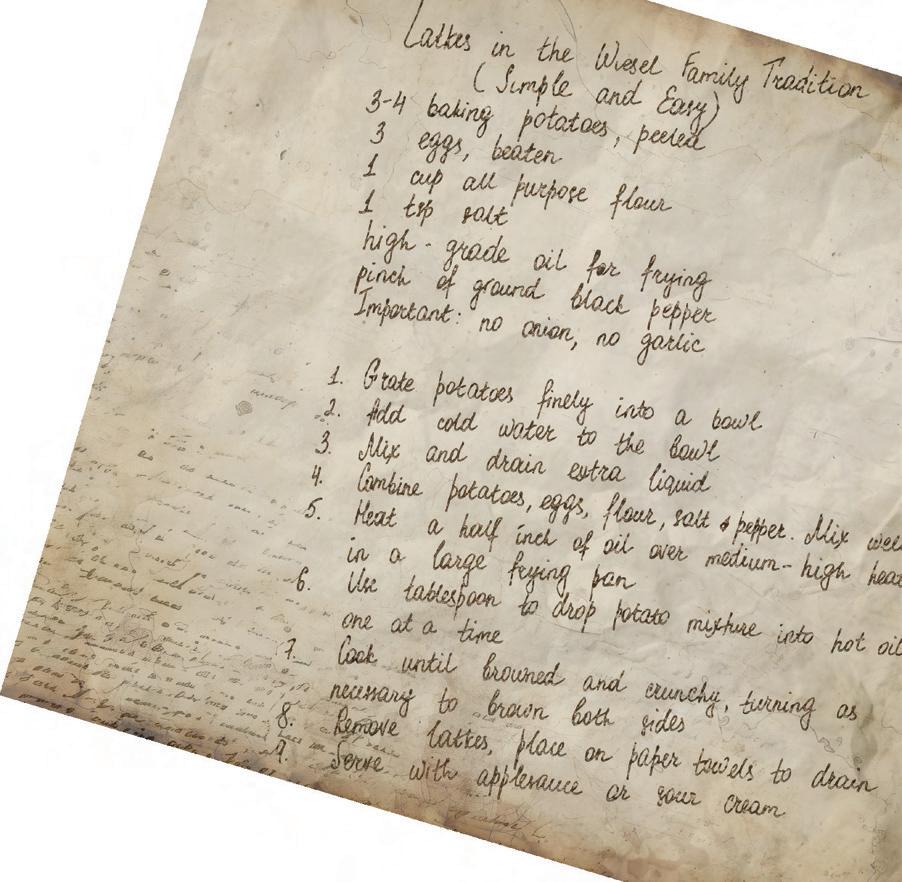 Latkes in the Wiesel Family Tradition
(Simple and Easy)
3-4 baking potatoes, peeled
3 eggs, beaten
1 cup all purpose flour
1 tsp salt
high-grade oil for frying
pinch of ground black pepper
Important: no onion, no garlic
1. Grate potatoes finely into a bowl
2. Add cold water to the bowl
3. Mix and drain extra liquid
4. Combine potatoes, eggs, flour, salt & pepper. Mix well
5. Heat a half inch of oil over medium-high heat
in a large frying pan
6. Use tablespoon to drop potato mixture into hot oil
one at a time
7. Cook until browned and crunchy, turning as
necessary to brown both sides
8. Remove latkes, place on paper towels to drain
9. Serve with applesauce or sour cream